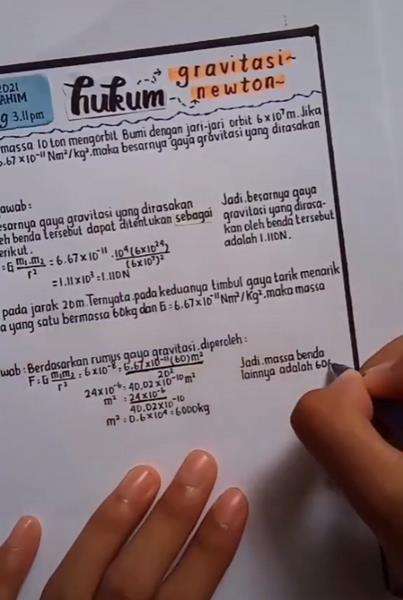 2021
AHIM
g 3.11pm
hukum
gravitasi~
newton~
massa 10 ton mengorbit Bumi dengan jari-jari orbit 6×10⁷m. Jika
6.67×10⁻¹¹ Nm²/kg², maka besarnya gaya gravitasi yang dirasakan
awab:
esarnya gaya gravitasi yang dirasakan
eh benda tersebut dapat ditentukan sebagai
erikut.
= G m₁.m₂ / r² = 6.67×10⁻¹¹ . 10⁴(6×10²⁴) / (6×10⁷)²
= 1.11×10³ = 1.110N
Jadi, besarnya gaya
gravitasi yang dirasa-
kan oleh benda tersebut
adalah 1.110N.
pada jarak 20m. Ternyata, pada keduanya timbul gaya tarik menarik
a yang satu bermassa 60kg dan G = 6.67×10⁻¹¹ Nm²/kg², maka massa
wab: Berdasarkan rumus gaya gravitasi, diperoleh:
F = G m₁m₂ / r² = 6×10⁻⁸ = 6.67×10⁻¹¹(60)m² / 20²
24×10⁻⁶ = 40.02×10⁻¹⁰m²
m² = 24×10⁻⁶ / 40.02×10⁻¹⁰
m² = 0.6×10⁴ = 6000kg
Jadi, massa benda
lainnya adalah 60